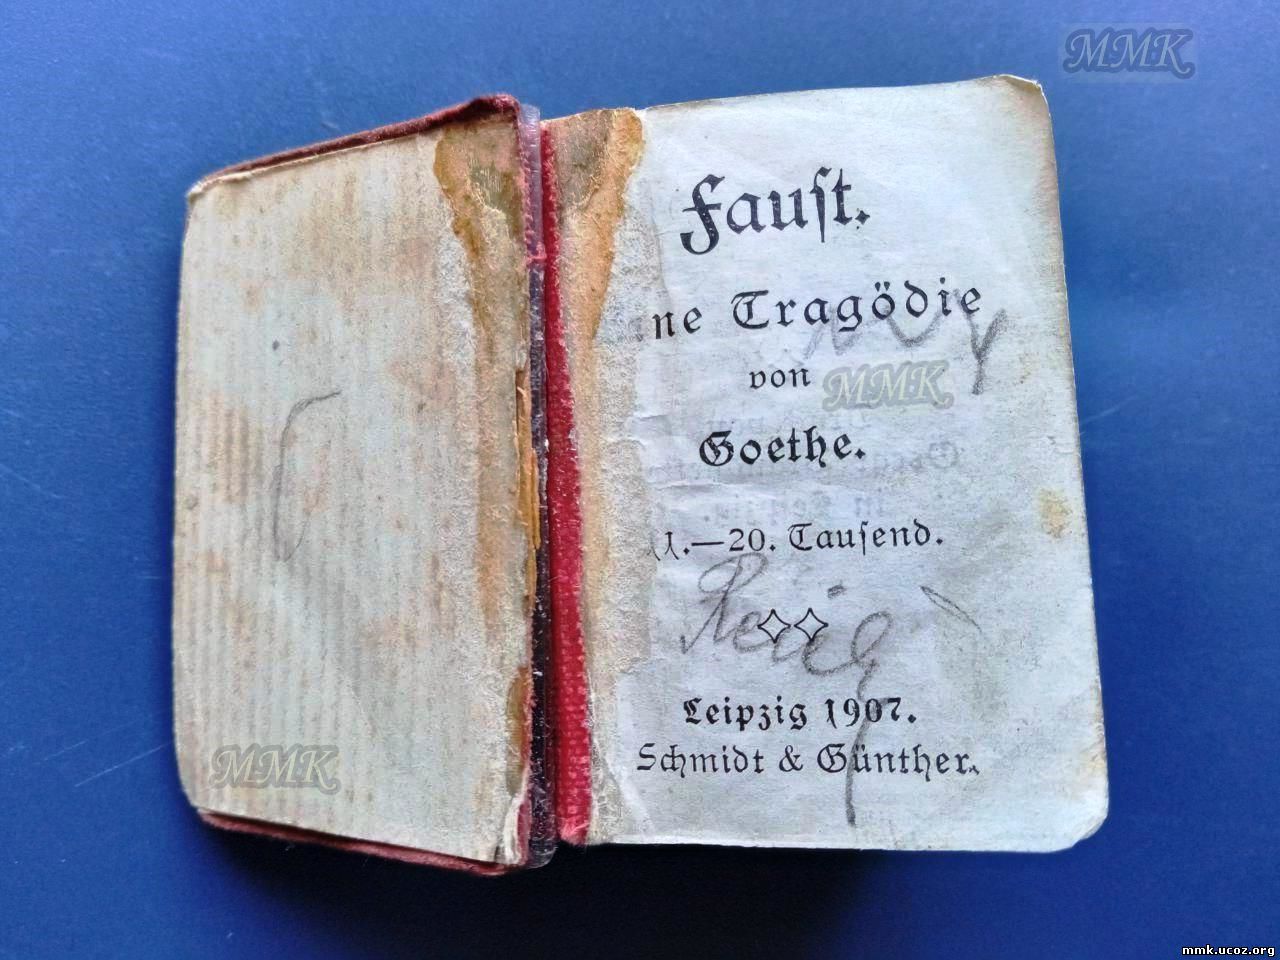 MMK
Faust.
ne Tragödie
von
MMK
Goethe.
11.—20. Tausend.
Leipzig 1907.
Schmidt & Günther.
MMK
mmk.ucoz.org